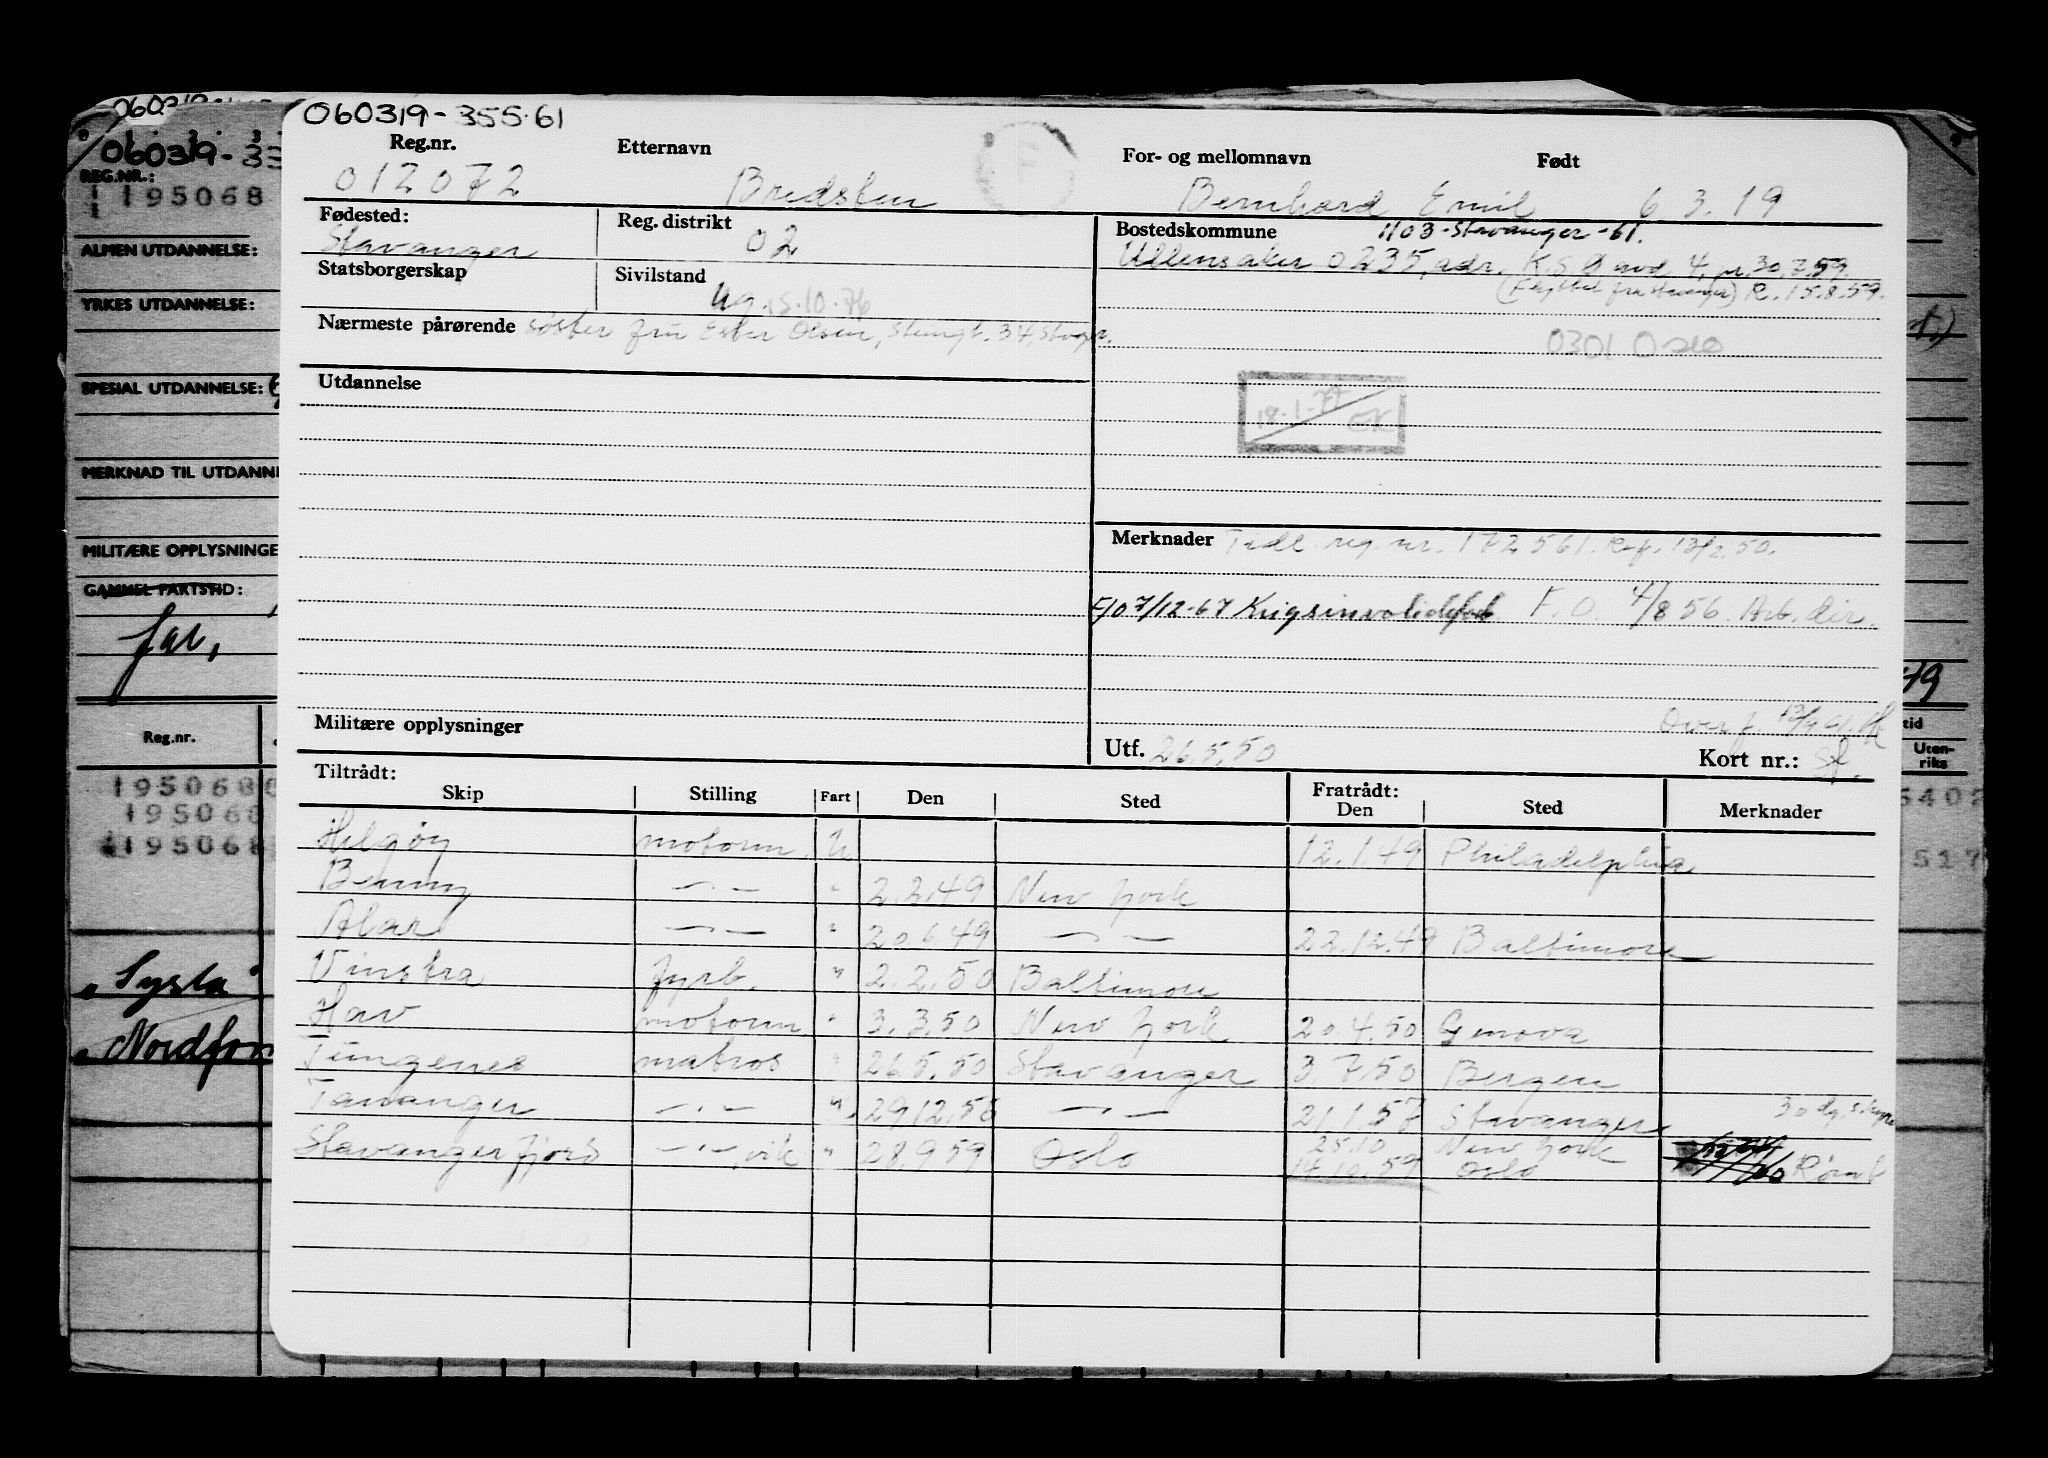 060319-355.61
Reg.nr. Etternavn For- og mellomnavn Født
012072 Bredsten Bernhard Emil 6 3. 19
Fødested: Stavanger
Reg. distrikt 02
Bostedskommune 1103-Stavanger-61.
Ullensaker 0235, adr. K.S. avd 4, 30.7.59.
(Flyttet fra Stavanger) R. 15.8.59.
Statsborgerskap
Sivilstand ug 15.10.76
Nærmeste pårørende søster fru Ester Olsen, 34,
0301 Oslo
Utdannelse
18.1.77 OK
Merknader Tidl. reg. nr. 172561. 13/2.50.
7/12-67 F.O. 4/8 56. Arb. dir.
Militære opplysninger
Overf.
Utf. 26.5.50
Kort nr.:
Tiltrådt: Fratrådt:
Skip Stilling Fart Den Sted Den Sted Merknader
Helgøy motorm. U 12.1.49 Philadelphia
Benny —·— " 2.2.49 New York
Alar —·— " 20.6.49 —·— 22.12.49 Baltimore
Vinstra fyrb. " 2.2.50 Baltimore
Hav motorm " 3.3.50 New York 20.4.50 Genova
Tungenes matros " 26.5.50 Stavanger 3 7.50 Bergen
Tananger —·— " 29.12.56 —·— 21.1.57 Stavanger 30 dg.
Stavangerfjord —·— vik " 28.9.59 Oslo 25.10 New York
14.10.59 Oslo
060319-33
REG.NR.:
195068
ALMEN UTDANNELSE:
YRKES UTDANNELSE:
SPESIAL UTDANNELSE:
MERKNAD TIL UTDANN
MILITÆRE OPPLYSNINGE
GAMMEL FARTSTID:
far,
Reg.nr.
195068
195068
195068
"Sysla"
Nordfon
t.)
19
tid
Uten-
riks
5402
517